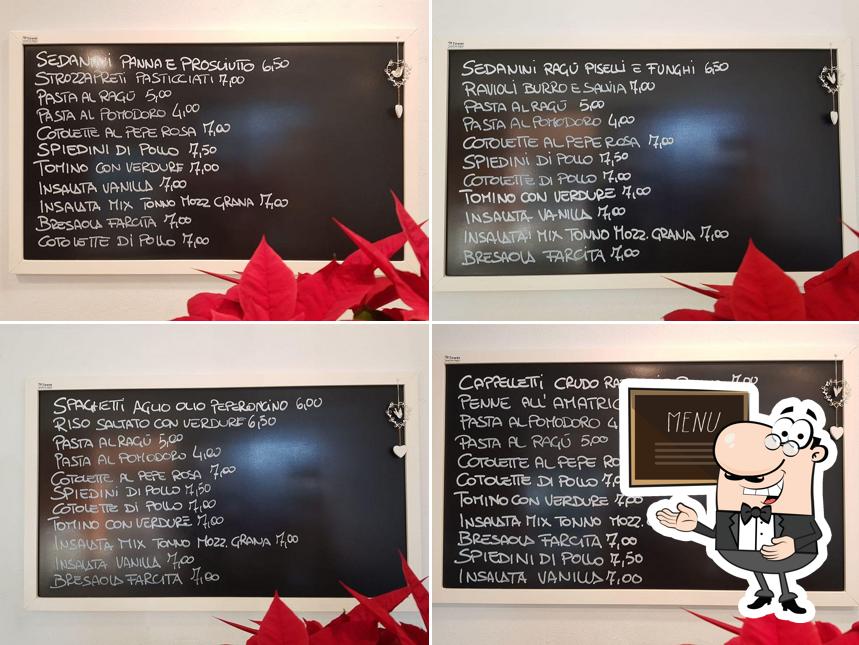 SEDANINI PANNA E PROSCIUTTO 6,50
STROZZAPRETI PASTICCIATI 7,00
PASTA AL RAGÙ 5,00
PASTA AL POMODORO 4,00
COTOLETTE AL PEPE ROSA 7,00
SPIEDINI DI POLLO 7,50
TOMINO CON VERDURE 7,00
INSALATA VANILLA 7,00
INSALATA MIX TONNO MOZZ GRANA 7,00
BRESAOLA FARCITA 7,00
COTOLETTE DI POLLO 7,00
SEDANINI RAGÙ PISELLI E FUNGHI 6,50
RAVIOLI BURRO E SALVIA 7,00
PASTA AL RAGÙ 5,00
PASTA AL POMODORO 4,00
COTOLETTE AL PEPE ROSA 7,00
SPIEDINI DI POLLO 7,50
COTOLETTE DI POLLO 7,00
TOMINO CON VERDURE 7,00
INSALATA VANILLA 7,00
INSALATA MIX TONNO MOZZ. GRANA 7,00
BRESAOLA FARCITA 7,00
SPAGHETTI AGLIO OLIO PEPERONCINO 6,00
RISO SALTATO CON VERDURE 6,50
PASTA AL RAGÙ 5,00
PASTA AL POMODORO 4,00
COTOLETTE AL PEPE ROSA 7,00
SPIEDINI DI POLLO 7,50
COTOLETTE DI POLLO 7,00
TOMINO CON VERDURE 7,00
INSALATA MIX TONNO MOZZ. GRANA 7,00
INSALATA VANILLA 7,00
BRESAOLA FARCITA 7,00
CAPPELLETTI CRUDO 7,00
PENNE ALL'
PASTA AL POMODORO 4
PASTA AL RAGÙ 5,00
COTOLETTE AL PEPE
COTOLETTE DI POLLO 7,0
TOMINO CON VERDURE 7,00
INSALATA MIX TONNO MOZZ.
BRESAOLA FARCITA 7,00
SPIEDINI DI POLLO 7,50
INSALATA VANILLA 7,00
MENU